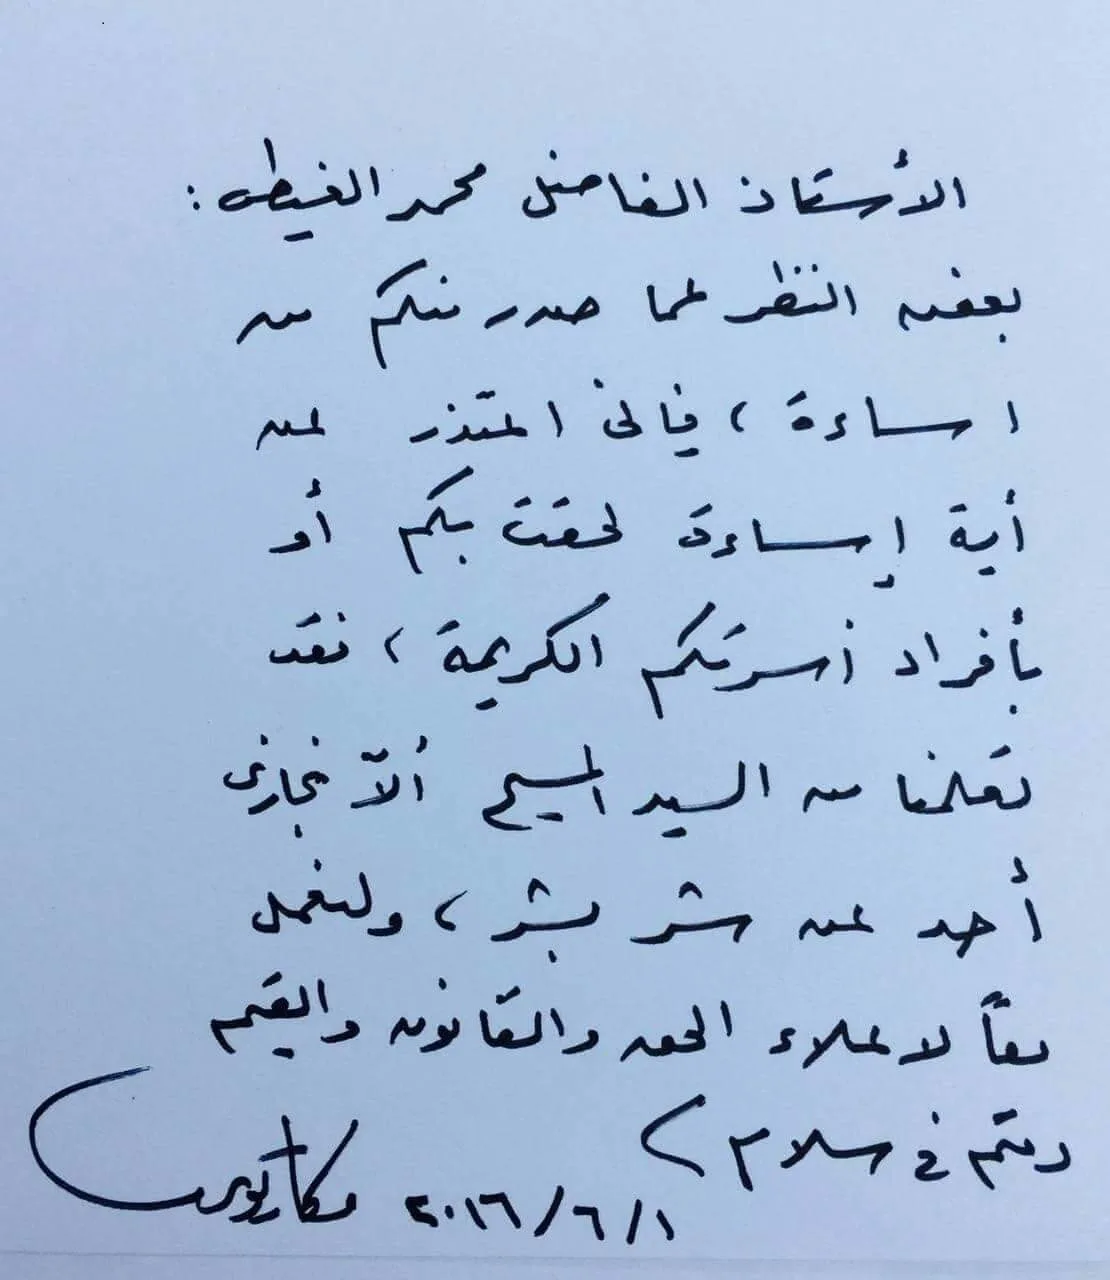 الأستاذ الفاضل محمد الغيطى :
بغض النظر لما صدر منكم من
اساءة ، فإنى اعتذر عن
أية إساءة لحقت بكم أو
بأفراد أسرتكم الكريمة ، فقد
تعلمنا من السيد المسيح ألاّ نجازى
أحد عن شر بشر ، ولنعمل
معاً لاعلاء الحق والقانون والقيم
دمتم فى سلام ،
مكاريوس ٢٠١٦/٦/١